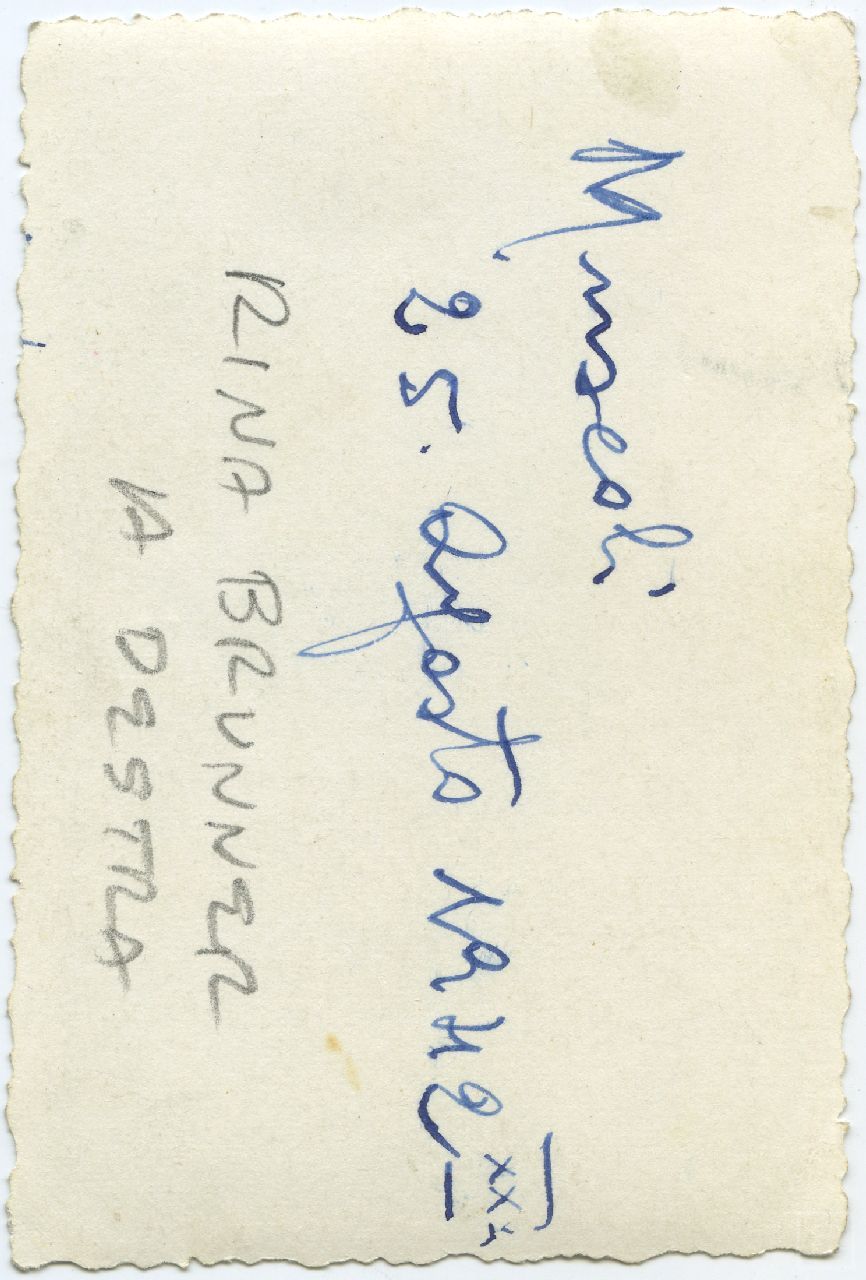 Muscoli
25. Agosto 1942 XX
RINA BRUNNER
A DESTRA